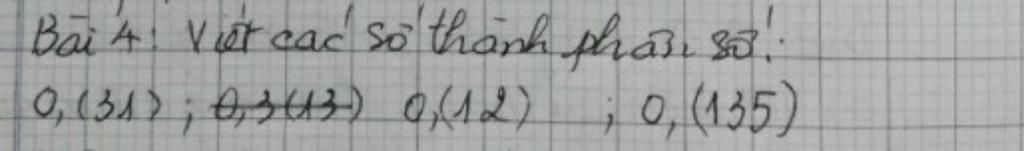 Bài 4: Viết các số thành phân số:
0,(31) ; 0,3(13) 0,(12) ; 0,(135)